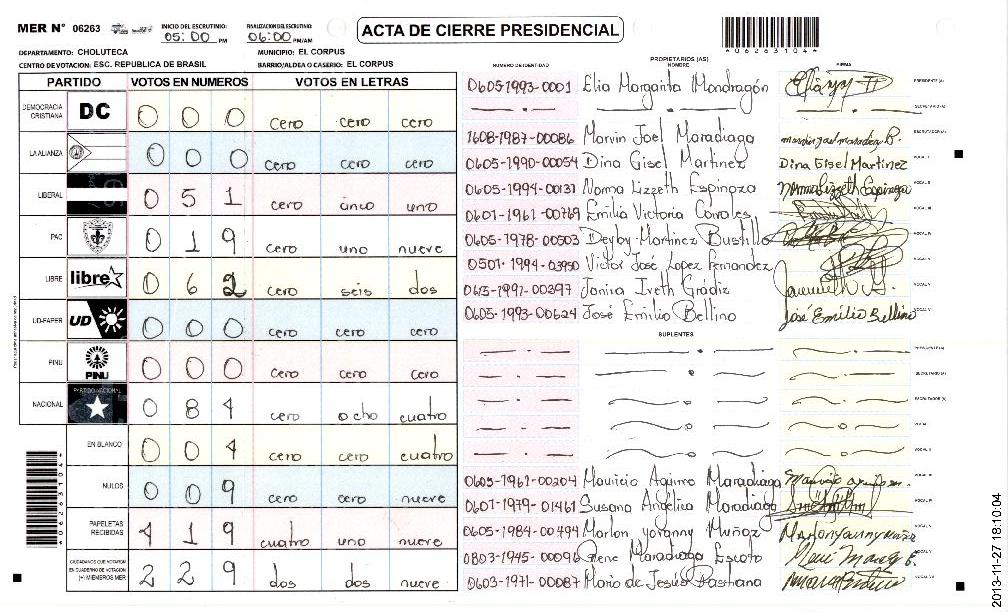 MER N° 06263
INICIO DEL ESCRUTINIO:
05:00 PM
FINALIZACION DEL ESCRUTINIO:
06:00 PM/AM
ACTA DE CIERRE PRESIDENCIAL
4062631044
DEPARTAMENTO: CHOLUTECA
MUNICIPIO: EL CORPUS
CENTRO DE VOTACION: ESC. REPUBLICA DE BRASIL
BARRIO/ALDEA O CASERIO: EL CORPUS
PARTIDO VOTOS EN NUMEROS VOTOS EN LETRAS
DEMOCRACIA CRISTIANA DC 0 0 0 cero cero cero
LA ALIANZA 0 0 0 cero cero cero
LIBERAL 0 5 1 cero cinco uno
PAC 0 1 9 cero uno nueve
LIBRE libre 0 6 2 cero seis dos
UD-FAPER UD 0 0 0 cero cero cero
PINU PINU 0 0 0 cero cero cero
NACIONAL PARTIDO NACIONAL 0 8 4 cero ocho cuatro
EN BLANCO 0 0 4 cero cero cuatro
NULOS 0 0 9 cero cero nueve
PAPELETAS RECIBIDAS 4 1 9 cuatro uno nueve
CIUDADANOS QUE VOTARON EN CUADERNO DE VOTACION (+) MIEMBROS MER 2 2 9 dos dos nueve
NUMERO DE IDENTIDAD PROPIETARIOS (AS) NOMBRE FIRMA
0605-1993-0001 Elia Margarita Mondragón PRESIDENTE (A)
SECRETARIO (A)
1608-1987-00086 Marvin Joel Maradiaga ESCRUTADOR (A)
0605-1990-00054 Dina Gisel Martinez Dina Gisel Martinez VOCAL I
0605-1994-00131 Norma Lizzeth Espinoza Norma Lizzeth Espinoza VOCAL II
0601-1961-00769 Emilia Victoria VOCAL III
0605-1978-00503 Deyby Martinez Bustillo
0501-1994-03950 Victor José Lopez Fernandez
0615-1991-00397 Janina Iveth Grádiz
0605-1993-00624 José Emilio Bellino José Emilio Bellino
SUPLENTES
PRESIDENTE (A)
SECRETARIO (A)
ESCRUTADOR (A)
VOCAL I
VOCAL II
0605-1961-00204 Mauricio Aguino Maradiaga
0601-1979-01461 Susana Angélica Maradiaga
0605-1984-00494 Marlon yovanny Muñoz
0803-1945-00096 Rene Maradiaga Escoto
0603-1971-00087 Mario de Jesus Pastrana
2013-11-27 18:10:04